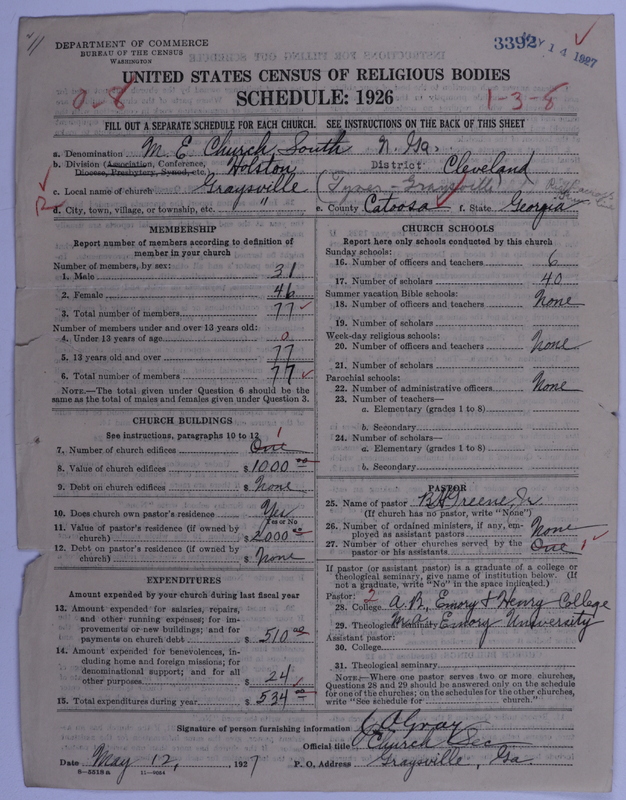 11
DEPARTMENT OF COMMERCE
BUREAU OF THE CENSUS
WASHINGTON
3392 MAY 14 1927
UNITED STATES CENSUS OF RELIGIOUS BODIES
SCHEDULE: 1926
2-8
1-3-8
FILL OUT A SEPARATE SCHEDULE FOR EACH CHURCH. SEE INSTRUCTIONS ON THE BACK OF THIS SHEET
a. Denomination M. E. Church, South N. Ga.
b. Division (Association, Conference, Diocese, Presbytery, Synod, etc.) Holston District Cleveland
c. Local name of church Graysville (Tyner - Graysville)
d. City, town, village, or township, etc. " e. County Catoosa f. State Georgia
R
MEMBERSHIP
Report number of members according to definition of
member in your church
Number of members, by sex:
1. Male 31
2. Female 46
3. Total number of members 77
Number of members under and over 13 years old:
4. Under 13 years of age 0
5. 13 years old and over 77
6. Total number of members 77
NOTE.—The total given under Question 6 should be the
same as the total of males and females given under Question 3.
CHURCH BUILDINGS
See instructions, paragraphs 10 to 12
7. Number of church edifices One 1
8. Value of church edifices $1000 00
9. Debt on church edifices $ None
10. Does church own pastor's residence Yes
Yes or No
11. Value of pastor's residence (if owned by
church) $2000 00
12. Debt on pastor's residence (if owned by
church) $ None
EXPENDITURES
Amount expended by your church during last fiscal year
13. Amount expended for salaries, repairs,
and other running expenses; for im-
provements or new buildings; and for
payments on church debt $ 510 00
14. Amount expended for benevolences, in-
cluding home and foreign missions; for
denominational support; and for all
other purposes $ 24
15. Total expenditures during year $ 534 00
CHURCH SCHOOLS
Report here only schools conducted by this church
Sunday schools:
16. Number of officers and teachers 6
17. Number of scholars 40
Summer vacation Bible schools:
18. Number of officers and teachers None
19. Number of scholars
Week-day religious schools:
20. Number of officers and teachers None
21. Number of scholars
Parochial schools:
22. Number of administrative officers None
23. Number of teachers—
a. Elementary (grades 1 to 8)
b. Secondary
24. Number of scholars—
a. Elementary (grades 1 to 8)
b. Secondary
PASTOR
25. Name of pastor B. H. Greene, Jr.
(If church has no pastor, write "None")
26. Number of ordained ministers, if any, em-
ployed as assistant pastors None
27. Number of other churches served by the
pastor or his assistants One 1
If pastor (or assistant pastor) is a graduate of a college or
theological seminary, give name of institution below. (If
not a graduate, write "No" in the space indicated.)
Pastor: 2
28. College A.B., Emory & Henry College
29. Theological seminary M.A. Emory University
Assistant pastor:
30. College
31. Theological seminary
NOTE.—Where one pastor serves two or more churches,
Questions 28 and 29 should be answered only on the schedule
for one of the churches; on the schedules for the other churches,
write "See schedule for church."
Signature of person furnishing information Gray
Official title Church Sec
Date May 12, 1927 P. O. Address Graysville, Ga
8-5518 a 11-9034